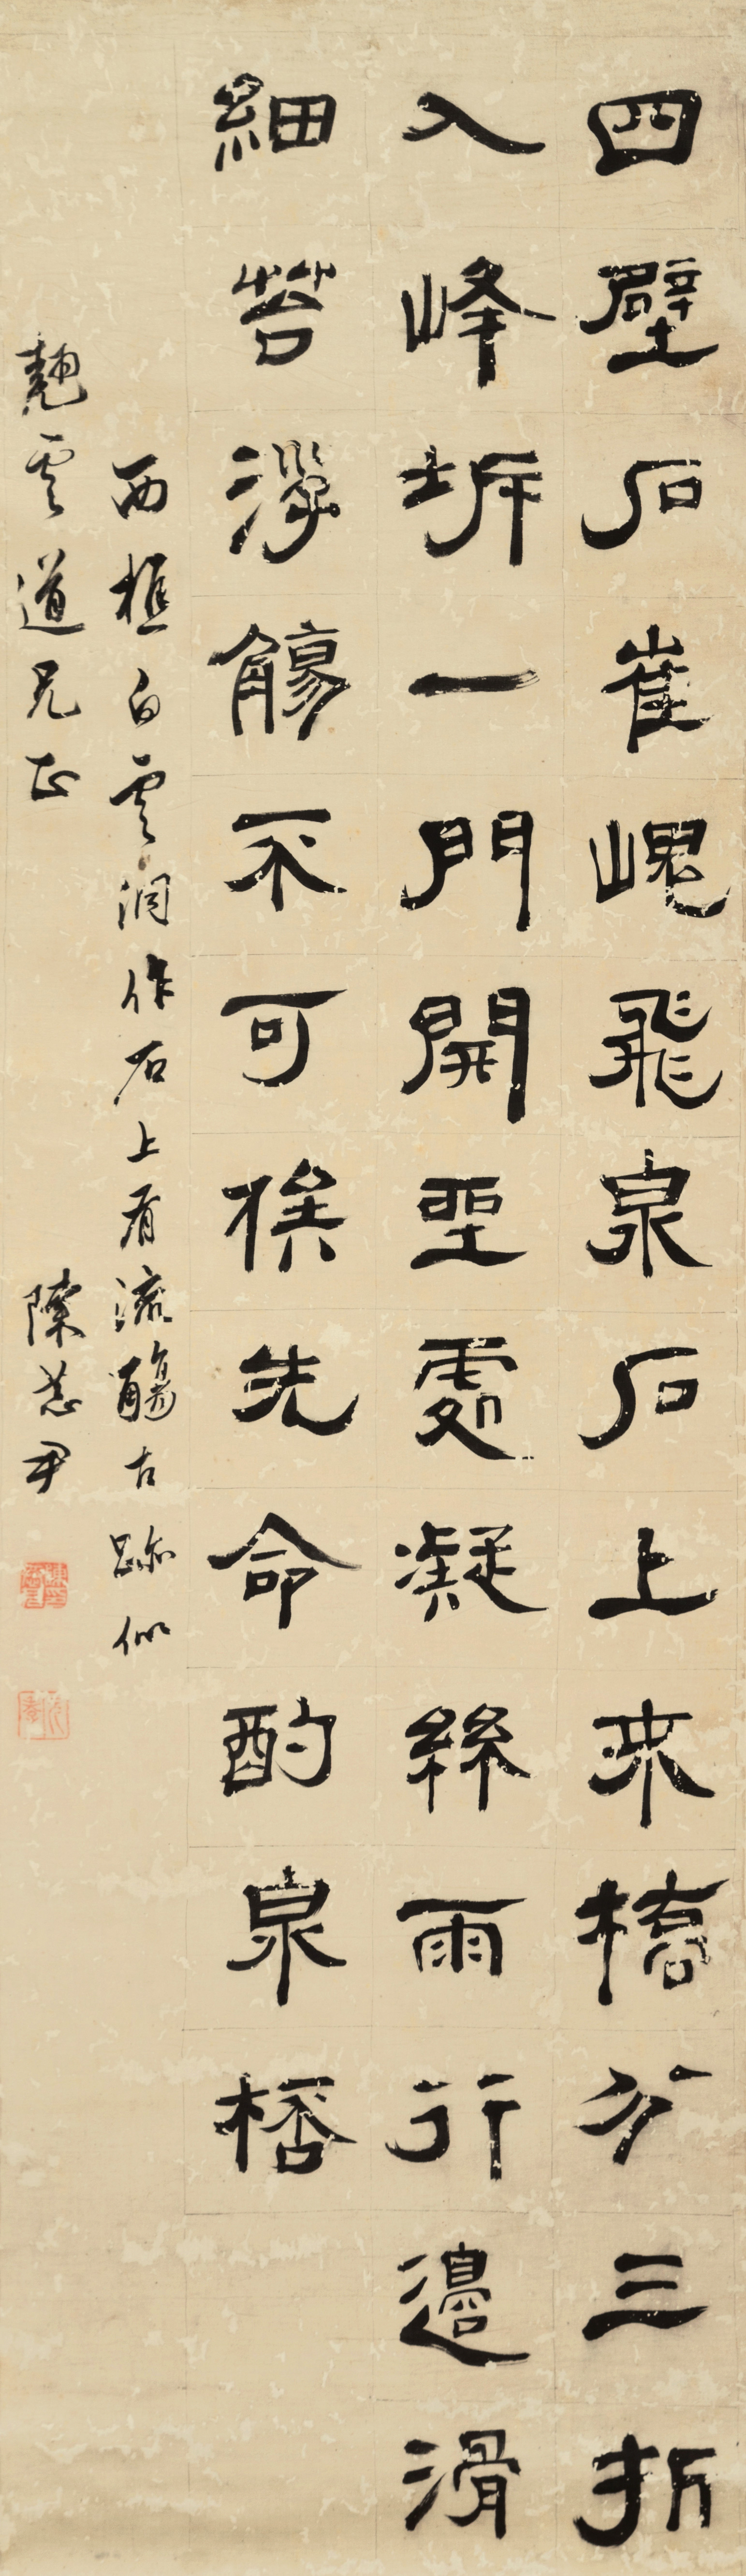 四壁石崔嵬飛泉石上來橋分三折
入峰坼一門開坐處凝絲雨行邊滑
細苔觴不可俟先命酌泉桮
西樵白雲洞作石上有流觴古跡似
雲道兄正 陳恭尹